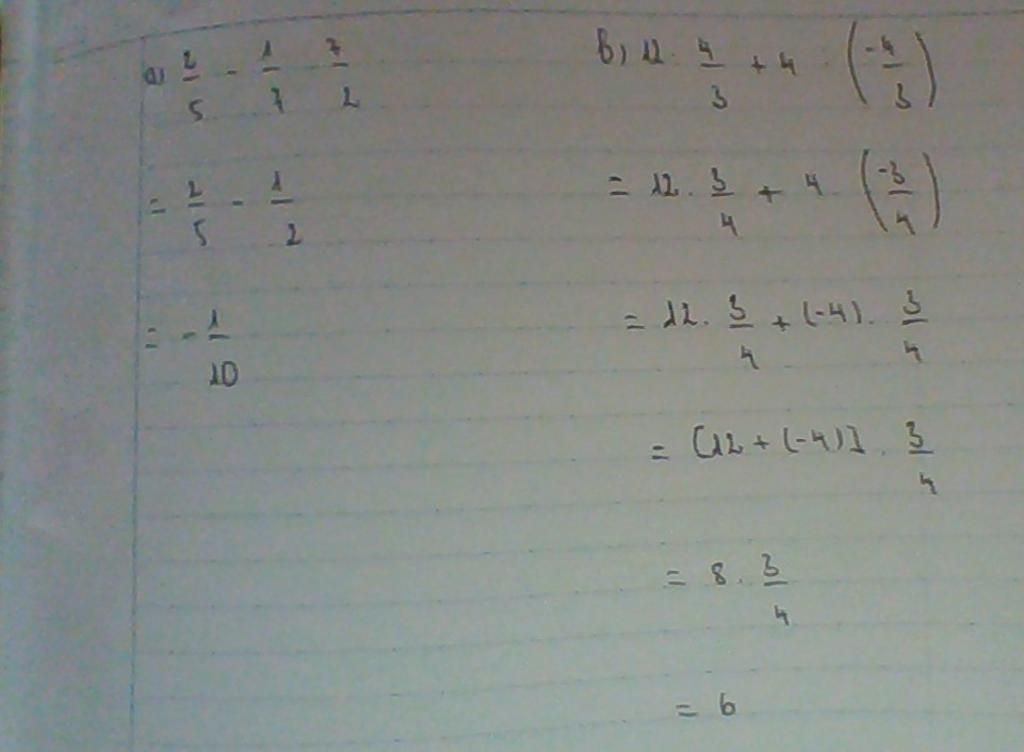 a) 2/5 - 1/7 7/2
= 2/5 - 1/2
= - 1/10
b) 12 . 4/3 + 4 . (-4/3)
= 12 . 3/4 + 4 (-3/4)
= 12 . 3/4 + (-4) . 3/4
= [12 + (-4)] . 3/4
= 8 . 3/4
= 6